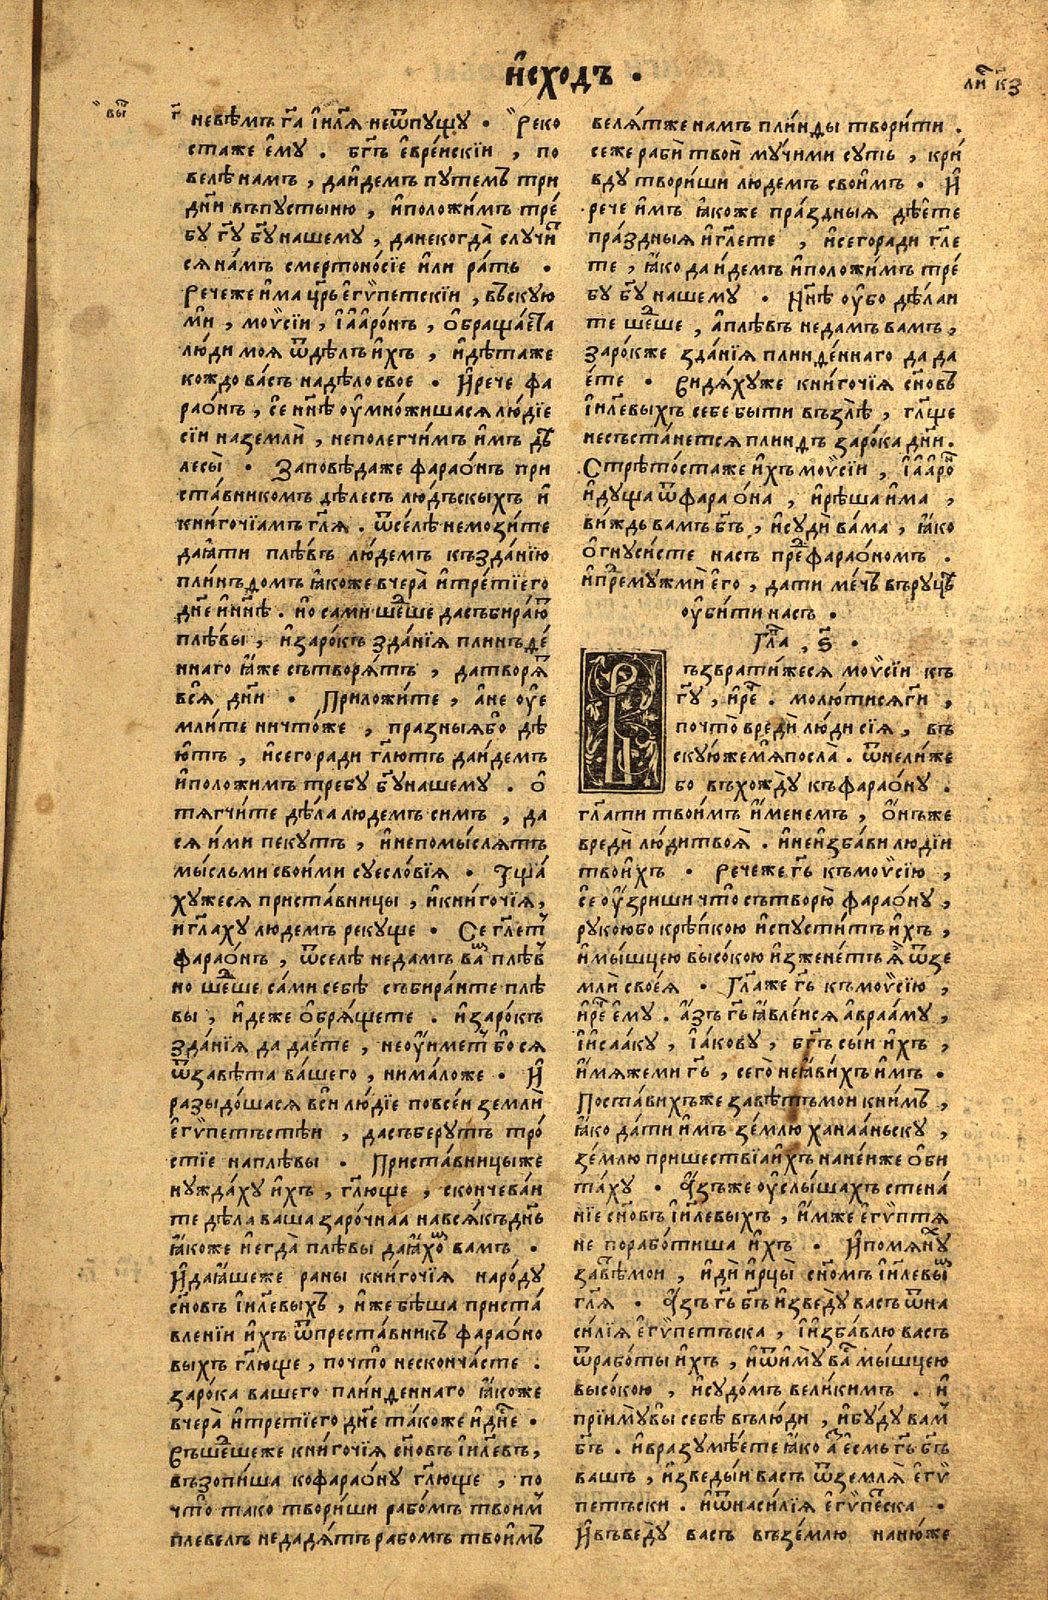 и҆схо́дъ .
ли҃ к҃з
в҃ы
г҃
невѣмъ г҃а і҆и҃лѧ неѿпущу . Реко
стаже є҆му . бг҃ъ є҆вре́искїи , по
велѣ намъ , даи́демъ путемъ три
дн҃и въпустыню , и҆положи́мъ тре́
бу гу҃ бу҃ нашему , данекогда̀ случи
сѧ на́мъ смертоно́сїе и҆ли ра́ть .
Речеже и҆ма цр҃ь є҆гѷпетскїи , въскую
мѝ , моѷси́и , і҆а҆аро́нъ , о҆браща́ета
лю́ди моѧ ѿдѣлъ и҆хъ , и҆дѣтаже
кождо ва́съ надѣло свое . И҆рече фа
рао́нъ , се нн҃ѣ оу҆мно́жишасѧ лю́дїе
сїи наземлѝ , неполегчи́мъ и҆мъ дѣ
лесы̀ . Заповѣдаже фарао́нъ при
ста́вникомъ дѣлесъ людьскыхъ и҆
кни́гочїамъ гл҃ѧ . ѿсе́лѣ немози́те
даꙗ҆ти плѣвъ лю́демъ къзда́нїю
плинъдомъ ꙗ҆коже вчера̀ и҆тре́тїего
дн҃е и҆нн҃ѣ . но сами ше́дше дасъбира́ютъ
плѣвы , и҆заро́къ зда́нїѧ плинъде́
ннаго ꙗ҆же сътворѧ́тъ , датворѧ́тъ
всѧ̀ дн҃и . Приложи́те , а҆не оу҆е
мли́те ничто́же , празныѧбо дѣ
ю́тъ , и҆сего ради гл҃ютъ даи́демъ
и҆положимъ требу бу҃ нашему . о҆
тѧгчи́те дѣла людемъ симъ , да
сѧ и́ми пекутъ , и҆непомы́слѧтъ
мы́сльми свои́ми суесло́вїѧ . Тща́
хужесѧ приста́вницы , и҆кни́гочїѧ ,
и҆гл҃аху людемъ рекуще . Се гл҃етъ
фарао́нъ , ѿселѣ недамъ вамъ плѣвъ
но ше́дше са́ми себѣ събира́ите плѣ
вы , и҆деже о҆брѧ́щете . и҆заро́къ
зда́нїѧ да дае́те , неоу҆́имет бо сѧ
ѿзавѣта ва́шего , нима́ложе . И҆
разыдо́шасѧ вси лю́дїе повсе́и землѝ
є҆гѷпетъстѣи , дасъберутъ тро́
стїе наплѣвы . Приста́вницыже
нужда́ху и҆хъ , гл҃юще , скончева́и
те дѣла ваша заро́чнаѧ навсѧ́къднь
ꙗ҆коже и҆егда̀ плѣвы даꙗ҆хомъ вамъ .
И҆даꙗ҆шеже раны кни́гочїѧ наро́ду
сн҃овъ і҆и҃левыхъ , и҆же бѣша приста́
влении и҆хъ ѿпреста́вникъ фарао́но
выхъ гл҃юще , почто̀ несконча́сте .
заро́ка вашего плинденнаго ꙗ҆коже
вчера̀ и҆тре́тїего дн҃е та́коже и҆дн҃е .
Въше́дшеже кни́гочїѧ сн҃овъ і҆и҃левъ ,
възопи́ша кофарао́ну гл҃юще , по
что̀ тако твори́ши рабо́мъ твои́мъ
плевелъ недадѧ́тъ рабомъ твои́мъ
велѧ́тже намъ пли́нды твори́ти .
сеже рабѝ твоѝ му́чими суть , кри́
вду твори́ши людемъ свои́мъ . И҆
рече и҆мъ ꙗ҆коже пра́здныѧ дѣ́ете
пра́здныѧ и҆гл҃ете , и҆сегоради гл҃е
те , ꙗ҆ко да и́демъ и҆положи́мъ тре́
бу бу҃ нашему . Нн҃ѣ оу҆бо дѣлаи
те ше́дше , а҆плѣвъ недамъ вамъ ,
заро́кже зда́нїѧ плинде́ннаго да да
е́те . Видѧ́хуже кни́гочїѧ сн҃овъ
і҆и҃левыхъ себе быти възлѣ̀ , гл҃ще
несъста́нетсѧ плиндъ заро́ка дн҃и .
Стрѣто́стаже и҆хъ моѷси́и , і҆а҆аро́нъ
и҆ду́ща ѿфарао́на , и҆рѣ́ша и҆ма ,
ви́ждь вамъ бг҃ъ , и҆суди̂ ва́ма , ꙗ҆ко
о҆гнуси́сте насъ предфарао́номъ .
и҆предмужми̂ е҆го , дати ме́чь въруцѣ
оу҆би́ти насъ .
Гла , ѕ҃ .
Възврати́жесѧ моѷси́и къ
гу҃ , и҆ре́че . молю́тисѧ ги҃ ,
почто̀ вредѝ лю́ди сїѧ , въ
скуюжемѧ̀ посла̀ . ѿнели́же
бо въхожду̀ къфарао́ну .
гл҃ати твои́мъ и҆́менемъ , о҆́нъже
вредѝ лю́дитвоѧ̀ . и҆неи҆зба́ви людїи
твои́хъ . Речеже гь҃ къмоѷсїю ,
се оу҆́зриши что̀ сътворю̀ фарао́ну ,
рукоюбо крѣпкою и҆спусти́тъ и҆хъ ,
и҆мы́шцею высо́кою и҆зжене́тъ ѧ҆̀ ѿзе
млѝ своеѧ̀ . Гл҃аже гь҃ къмоѷсїю ,
и҆ре́че є҆му . а҆́зъ гь҃ ꙗ҆вле́исѧ а҆враа́му ,
і҆и҆саа́ку , і҆а́кову , бг҃ъ сы́и и҆́хъ ,
и҆́мѧжеми гь҃ , сего̀ неꙗ҆ви́хъ и҆мъ .
Поста́вихъже завѣтъмои книмъ ,
ꙗ҆ко да́ти и҆мъ зе́млю ханаа́ньску ,
зе́млю пришествїѧи҆хъ нане́иже о҆би
та́ху . А҆зъже оу҆слы́шахъ стена́
нїе сн҃овъ і҆и҃левыхъ , и҆́мже є҆гѷптѧ
не порабо́тиша и҆хъ . И҆помѧну́хъ
завѣтмои , и҆дѝ и҆рцы̀ сн҃омъ і҆и҃левымъ
гл҃ѧ . А҆зъ гь҃ бг҃ъ и҆зведу̀ васъ ѿна
си́лїѧ є҆гѷпетъска , і҆и҆зба́влю васъ
ѿрабо́ты и҆хъ , и҆ѿи҆му̀ васъ мы́шцею
высо́кою , и҆судо́мъ вели́кимъ . и҆
прїиму̀вы себѣ въ лю́ди , и҆бу́ду вамъ
бг҃ъ . и҆вразумѣете ꙗ҆ко а҆́зъ є҆смь гь҃ бг҃ъ
вашъ , и҆зведы́и васъ ѿземлѧ̀ є҆гѷ
петъски . и҆ѿнаси́лїѧ є҆гѷпеска .
И҆въведу̀ васъ възе́млю наню́же